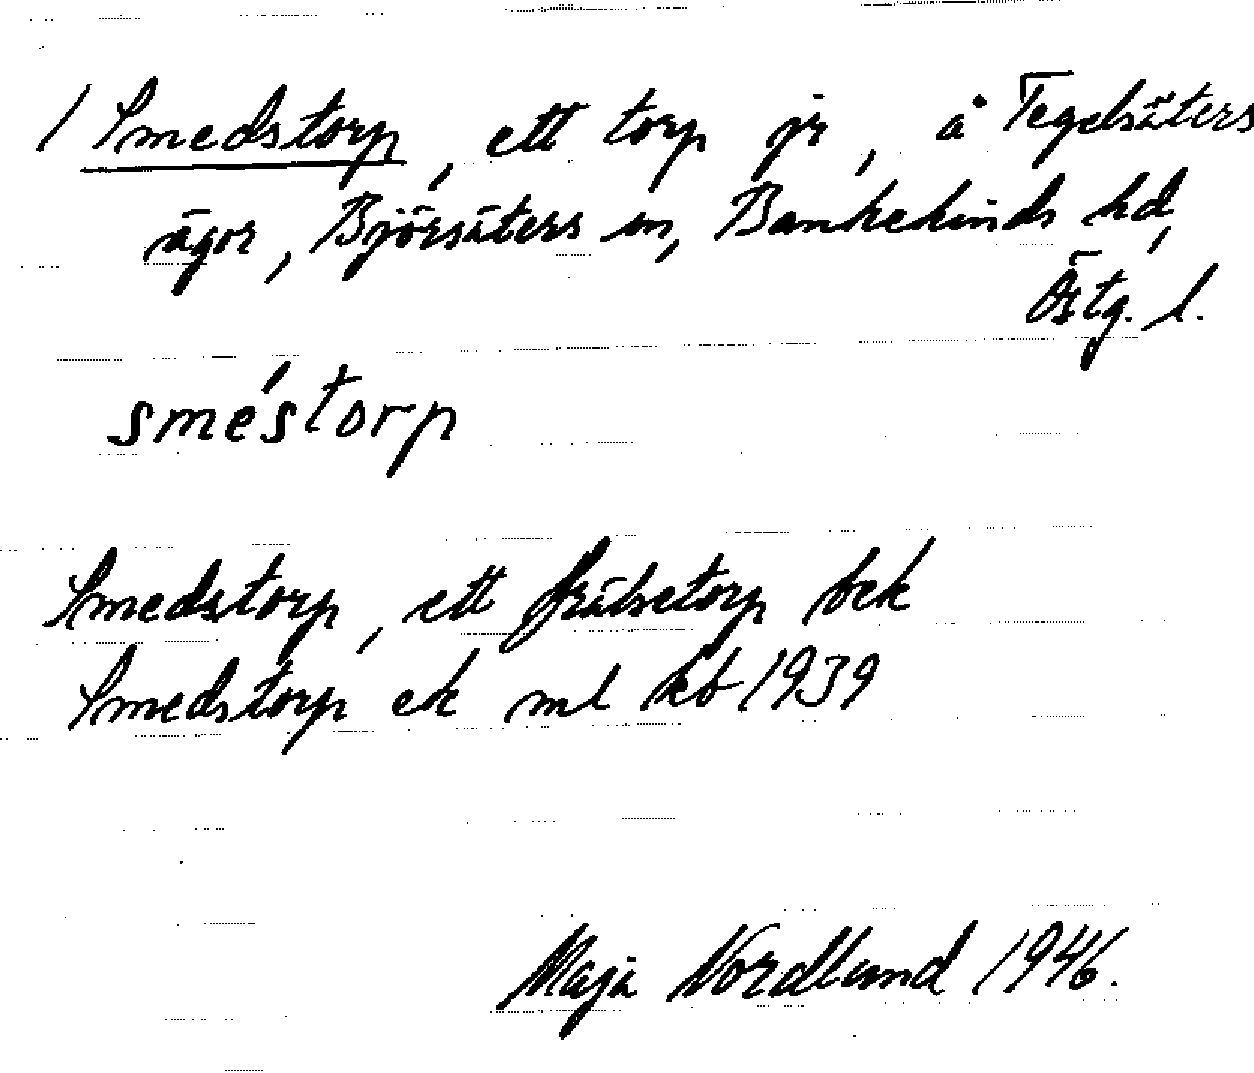 / Smedstorp, ett torp jr, å Tegelsäters
ägor, Björsäters sn, Bankekinds hd,
Östg. l.
smés´torp
Smedstorp, ett frälsetorp bek
Smedstorp ek ml kb 1939
Maja Nordlund 1946.